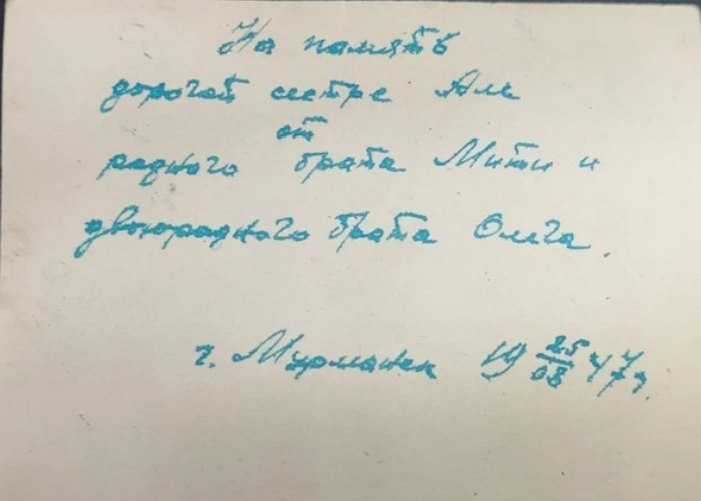 На память
дорогой сестре Але
от
родного брата Мити и
двоюродного брата Олега.
г. Мурманск 19 25/08 47 г.